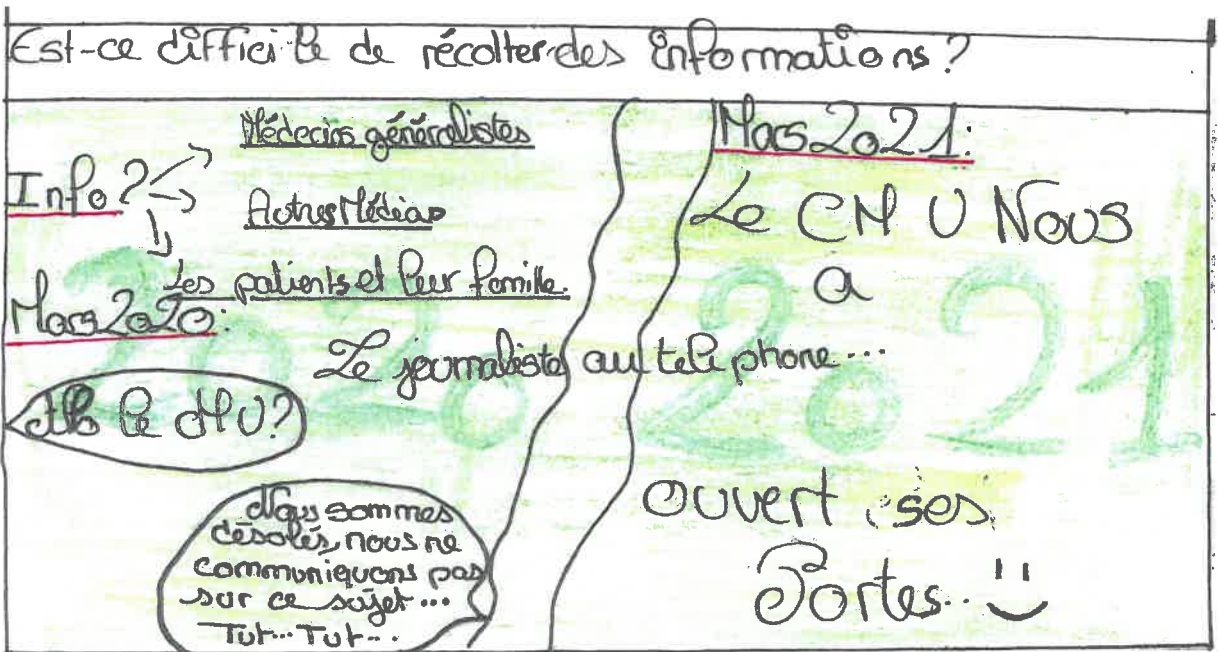 Est-ce difficile de récolter des informations ?
Médecins généralistes
Info ?
Autres Médias
Les patients et leur famille.
Mars 2020:
Le journaliste au téléphone...
Allo le CMU?
Nous sommes
désolés, nous ne
communiquons pas
sur ce sujet...
Tut... Tut...
Mars 2021:
Le CH U Nous
a
ouvert ses
Portes..
2020
2021